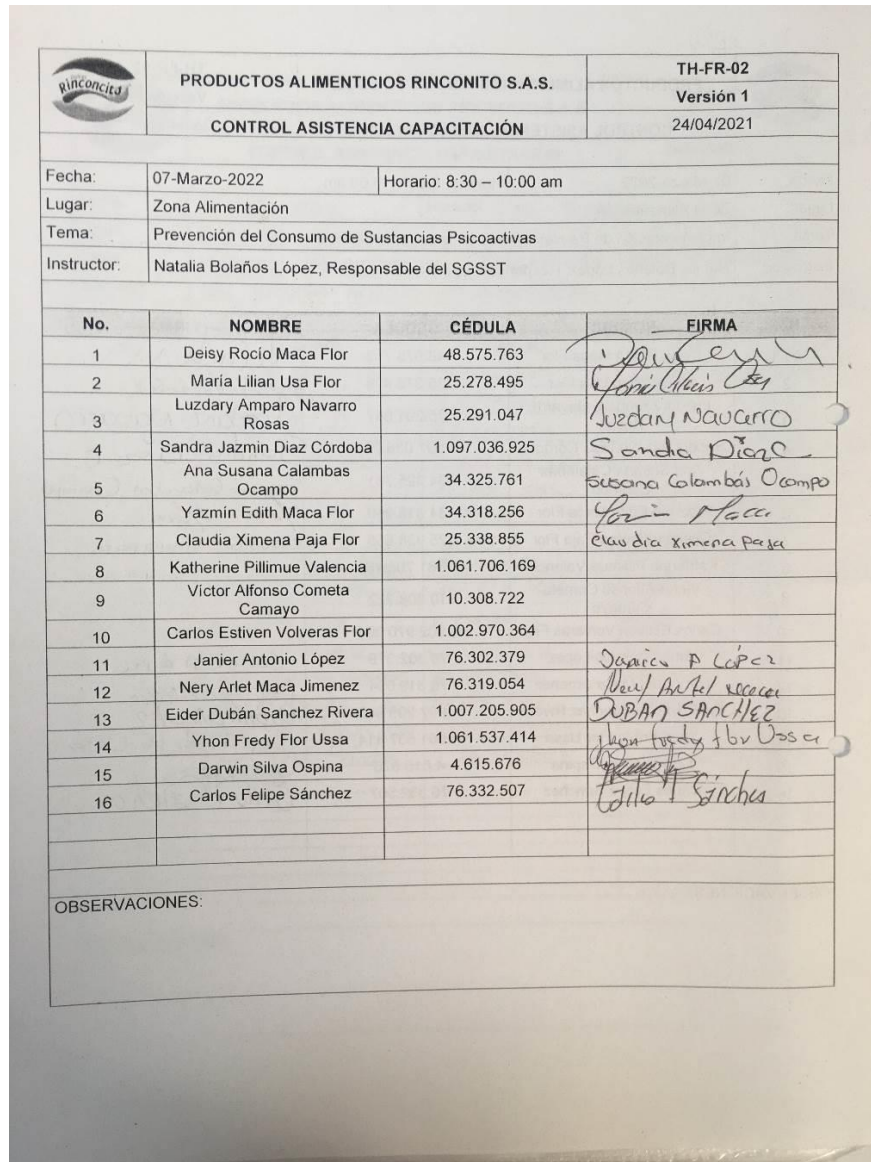 Rinconcito
PRODUCTOS ALIMENTICIOS RINCONITO S.A.S.
TH-FR-02
Versión 1
CONTROL ASISTENCIA CAPACITACIÓN
24/04/2021
Fecha: 07-Marzo-2022 Horario: 8:30 – 10:00 am
Lugar: Zona Alimentación
Tema: Prevención del Consumo de Sustancias Psicoactivas
Instructor: Natalia Bolaños López, Responsable del SGSST
No. NOMBRE CÉDULA FIRMA
1 Deisy Rocío Maca Flor 48.575.763
2 María Lilian Usa Flor 25.278.495
3 Luzdary Amparo Navarro Rosas 25.291.047 Luzdary Navarro
4 Sandra Jazmin Diaz Córdoba 1.097.036.925 Sandra Diaz C
5 Ana Susana Calambas Ocampo 34.325.761 Susana Calambás Ocampo
6 Yazmín Edith Maca Flor 34.318.256 Maca
7 Claudia Ximena Paja Flor 25.338.855 Claudia Ximena Paja
8 Katherine Pillimue Valencia 1.061.706.169
9 Víctor Alfonso Cometa Camayo 10.308.722
10 Carlos Estiven Volveras Flor 1.002.970.364
11 Janier Antonio López 76.302.379 A López
12 Nery Arlet Maca Jimenez 76.319.054
13 Eider Dubán Sanchez Rivera 1.007.205.905 DUBAN SANCHEZ
14 Yhon Fredy Flor Ussa 1.061.537.414 Jhon fredy flor Ussa
15 Darwin Silva Ospina 4.615.676
16 Carlos Felipe Sánchez 76.332.507 Sánchez
OBSERVACIONES: